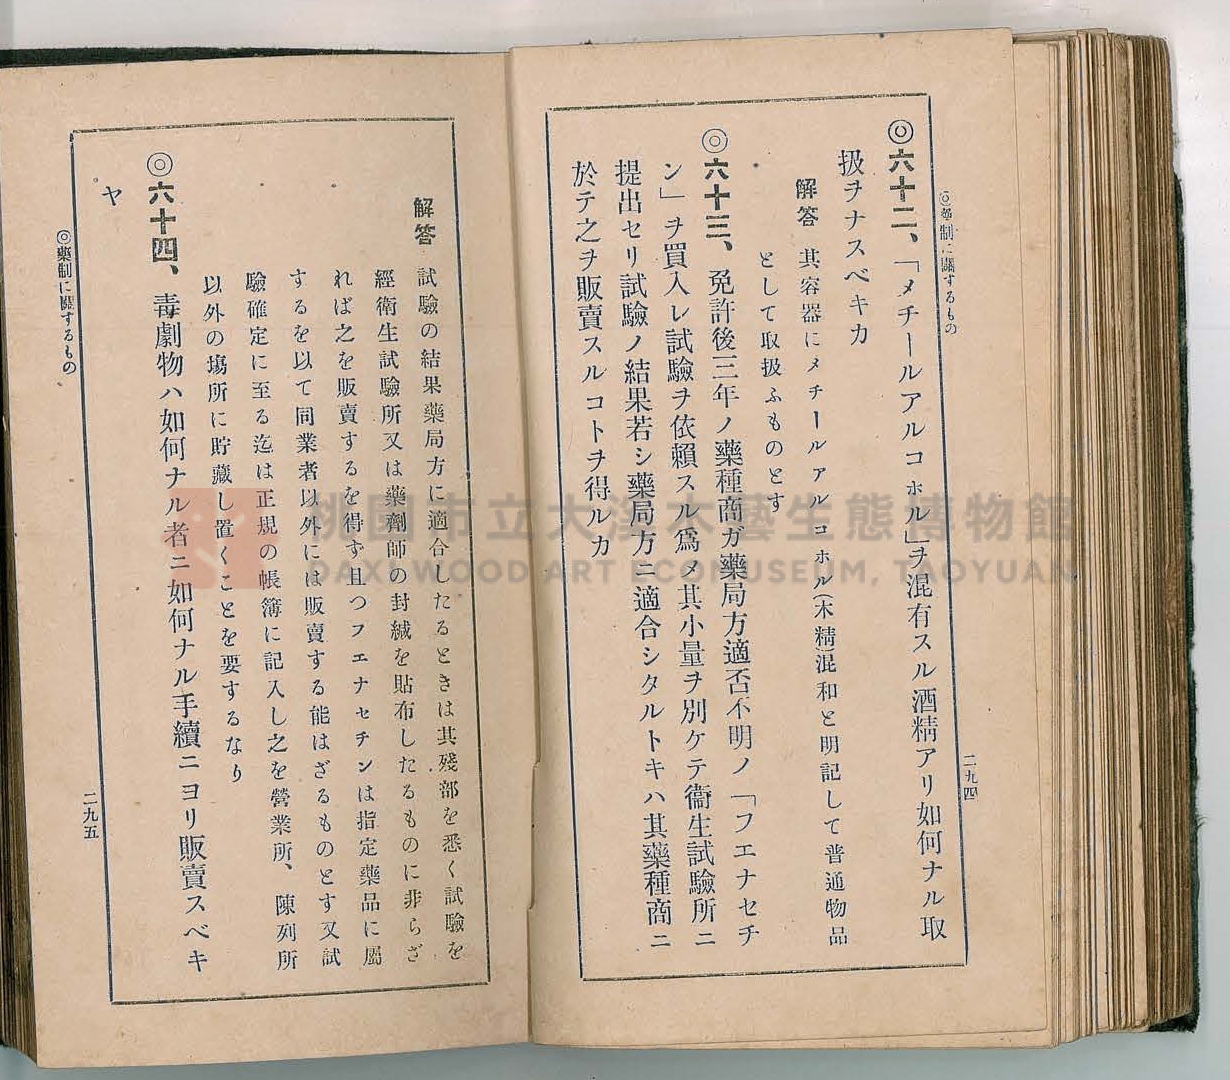 ◎藥制に關するもの
◎六十二、「メチールアルコホル」ヲ混有スル酒精アリ如何ナル取
扱ヲナスベキカ
解答 其容器にメチールアルコホル(木精)混和と明記して普通物品
として取扱ふものとす
◎六十三、免許後三年ノ藥種商ガ藥局方適否不明ノ「フエナセチ
ン」ヲ買入レ試驗ヲ依賴スル爲メ其小量ヲ別ケテ衞生試驗所ニ
提出セリ試驗ノ結果若シ藥局方ニ適合シタルトキハ其藥種商ニ
於テ之ヲ販賣スルコトヲ得ルカ
二九四
解答 試驗の結果藥局方に適合したるときは其殘部を悉く試驗を
經衛生試驗所又は藥劑師の封緘を貼布したるものに非らざ
れば之を販賣するを得ず且つフエナセチンは指定藥品に屬
するを以て同業者以外には販賣する能はざるものとす又試
驗確定に至る迄は正規の帳簿に記入し之を營業所、陳列所
以外の塲所に貯藏し置くことを要するなり
◎六十四、毒劇物ハ如何ナル者ニ如何ナル手續ニヨリ販賣スベキ
ヤ
◎藥制に關するもの
二九五
桃園市立大溪木藝生態博物館
DAXI WOOD ART ECOMUSEUM, TAOYUAN